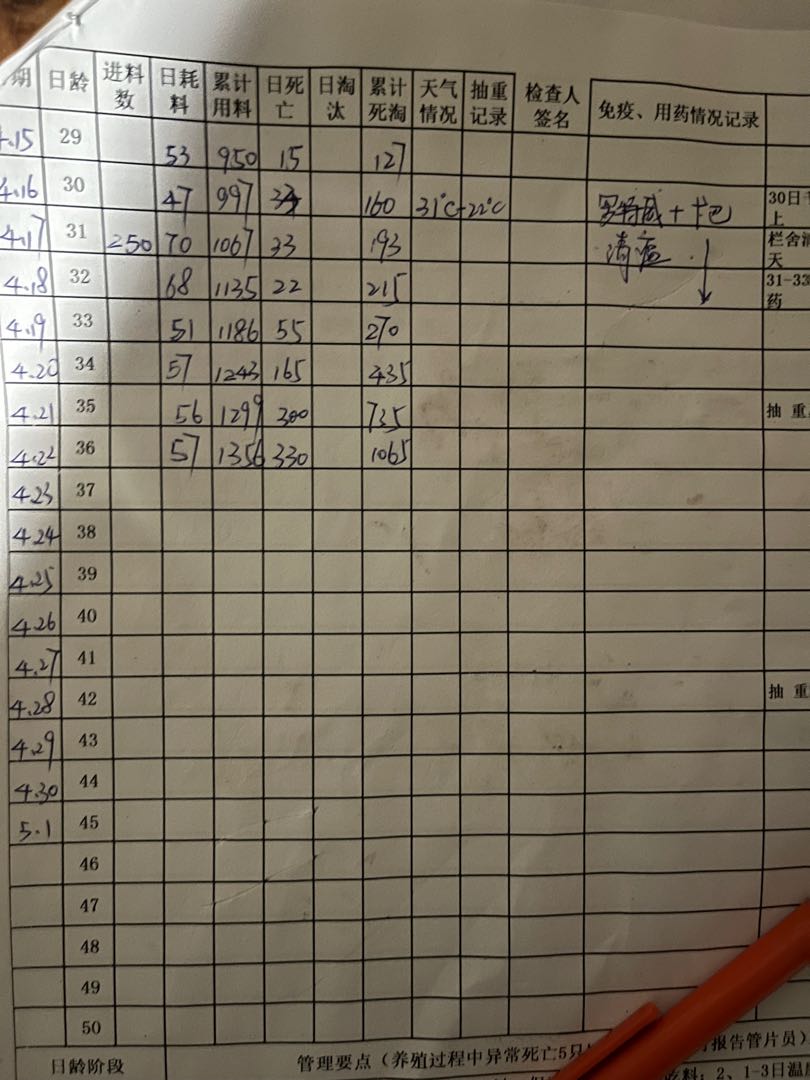 期 日龄 进料数 日耗料 累计用料 日死亡 日淘汰 累计死淘 天气情况 抽重记录 检查人签名 免疫、用药情况记录
4.15 29 53 950 15 127
4.16 30 47 997 160 31℃-22℃ 罗特威+卡巴 30日 上
4.17 31 250 70 1067 33 193 清瘟 栏舍 天
4.18 32 68 1135 22 215 31-33 药
4.19 33 51 1186 55 270
4.20 34 57 1243 165 435
4.21 35 56 1299 300 735 抽 重
4.22 36 57 1356 330 1065
4.23 37
4.24 38
4.25 39
4.26 40
4.27 41
4.28 42 抽 重
4.29 43
4.30 44
5.1 45
46
47
48
49
50
日龄阶段 管理要点（养殖过程中异常死亡5只 报告管片员）
吃料；2、1-3日温